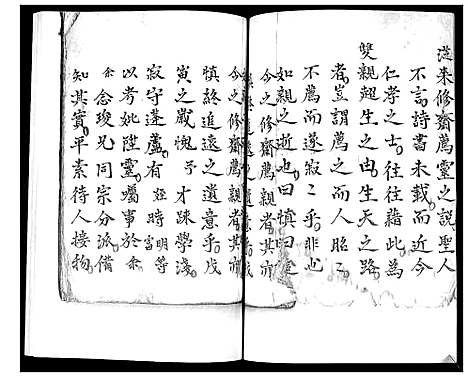 從来修齋薦靈之說聖人
不言詩書未載而近今
仁孝之士往往藉此為
雙親超生之由生天之路
者豈謂薦之而人昭
不薦而遂寂寂乎非也
如親之逝也曰慎曰
今之修齋薦親者其亦
今之修齋薦親者其亦
慎終追遠之遺意乎戊
寅之歲愧予才疎學淺
寂守蓬廬有姪時明富等
以考妣陞靈囑事於余
余念璇兄同宗分派備
知其實平素待人接物